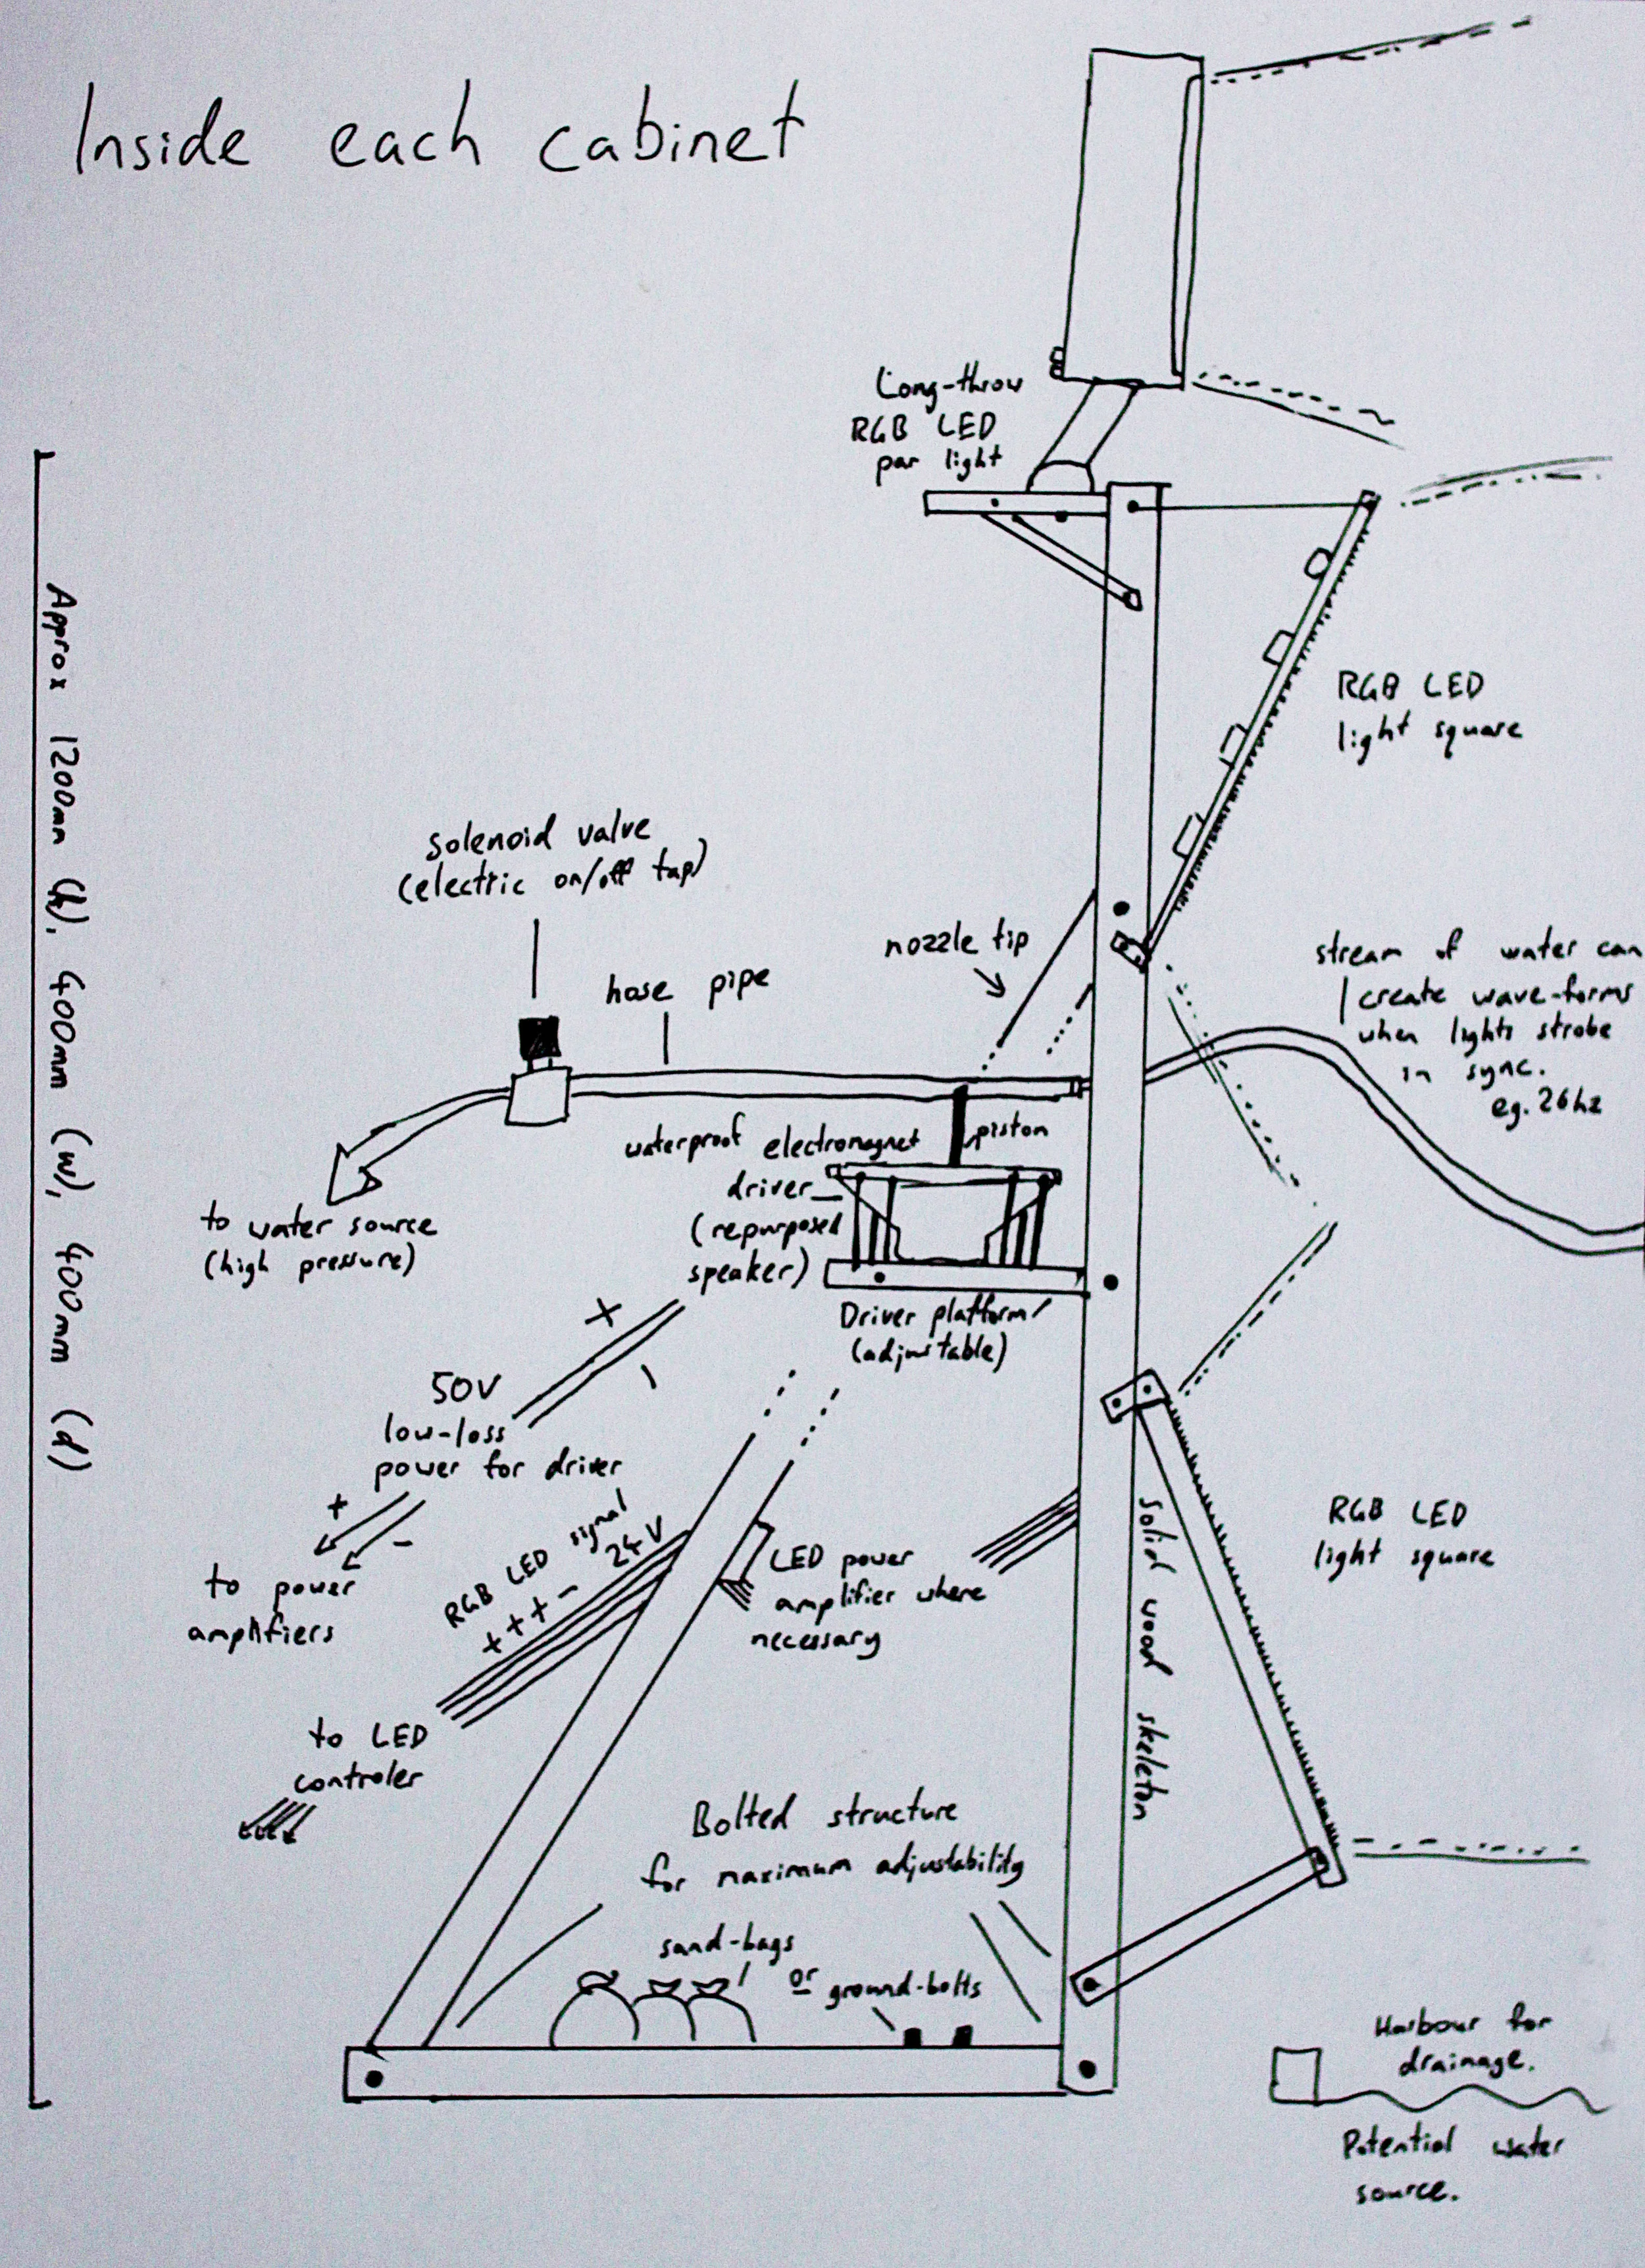 Inside each cabinet
Long-throw
RGB LED
par light
Approx 1200mm (h), 400mm (w), 400mm (d)
RGB LED
light square
solenoid valve
(electric on/off tap)
nozzle tip
hose pipe
stream of water can
create wave-forms
when lights strobe
in sync.
eg. 26hz
waterproof electromagnet
driver
(repurposed
speaker)
piston
to water source
(high pressure)
Driver platform
(adjustable)
+
-
50V
low-loss
power for driver
+
-
to power
amplifiers
RGB LED signal
+++- 24V
LED power
amplifier where
necessary
Solid wood skeleton
RGB LED
light square
to LED
controler
Bolted structure
for maximum adjustability
sand-bags
or
ground-bolts
Harbour for
drainage.
Potential water
source.